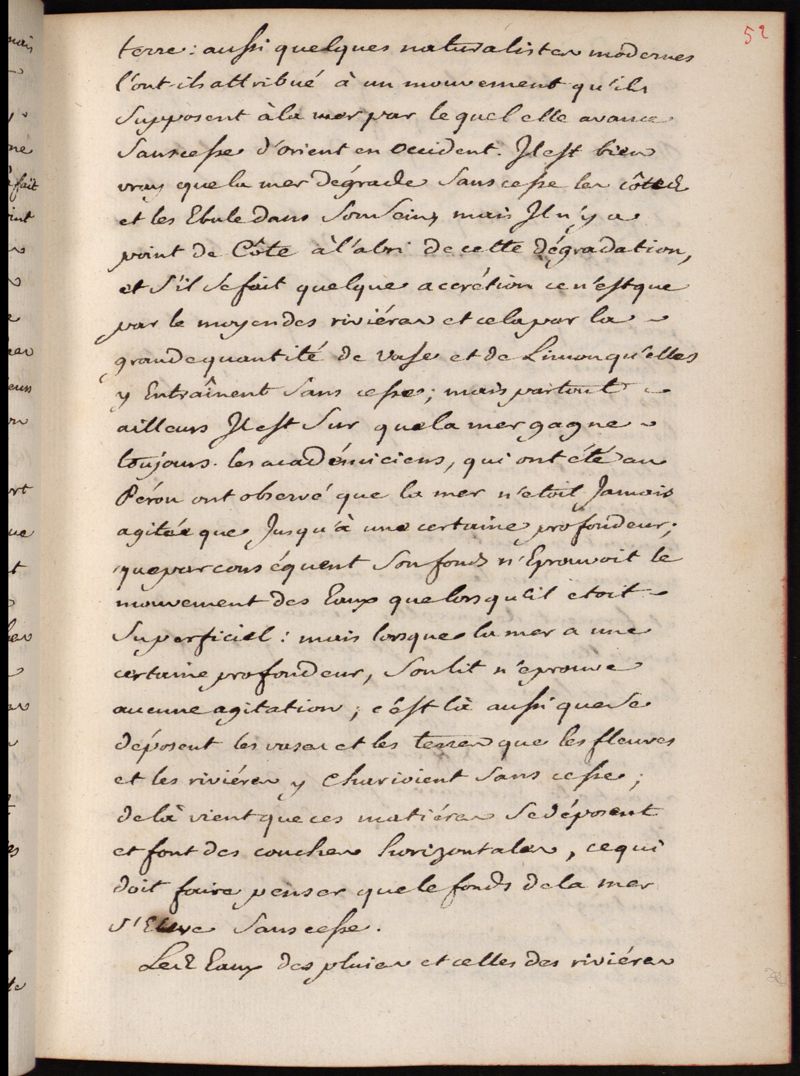 52
terre: aussi quelques naturalistes modernes
l'ont-ils attribué à un mouvement qu'ils
Supposent à la mer par lequel elle avance
Sans cesse d'orient en Occident. Il est bien
vray que la mer dégrade Sans cesse les côtes
et les Ebule dans Son Sein, mais Il n'y a
point de Côte à l'abri de cette dégradation,
et S'il Se fait quelque accrétion ce n'est que
par le moyen des riviéres et cela par la
grande quantité de Vase et de Limon qu'elles
y Entraînent Sans cesse; mais partout
ailleurs Il est Sur que la mer gagne
toujours. les académiciens, qui ont été au
Pérou ont observé que la mer n'etoit Jamais
agitée que Jusqu'à une certaine profondeur;
que par conséquent Son fonds n'Eprouvoit le
mouvement des Eaux que lorsqu'il etoit
Superficiel: mais lorsque la mer a une
certaine profondeur, Son lit n'eprouve
aucune agitation; c'est là aussi que Se
déposent les vases et les terres que les fleuves
et les riviéres y Charioient Sans cesse;
de là vient que ces matiéres Se déposent
et font des couches horizontales, ce qui
doit faire penser que le fonds de la mer
S'Eleve Sans cesse.
Les Eaux des pluies et celles des riviéres